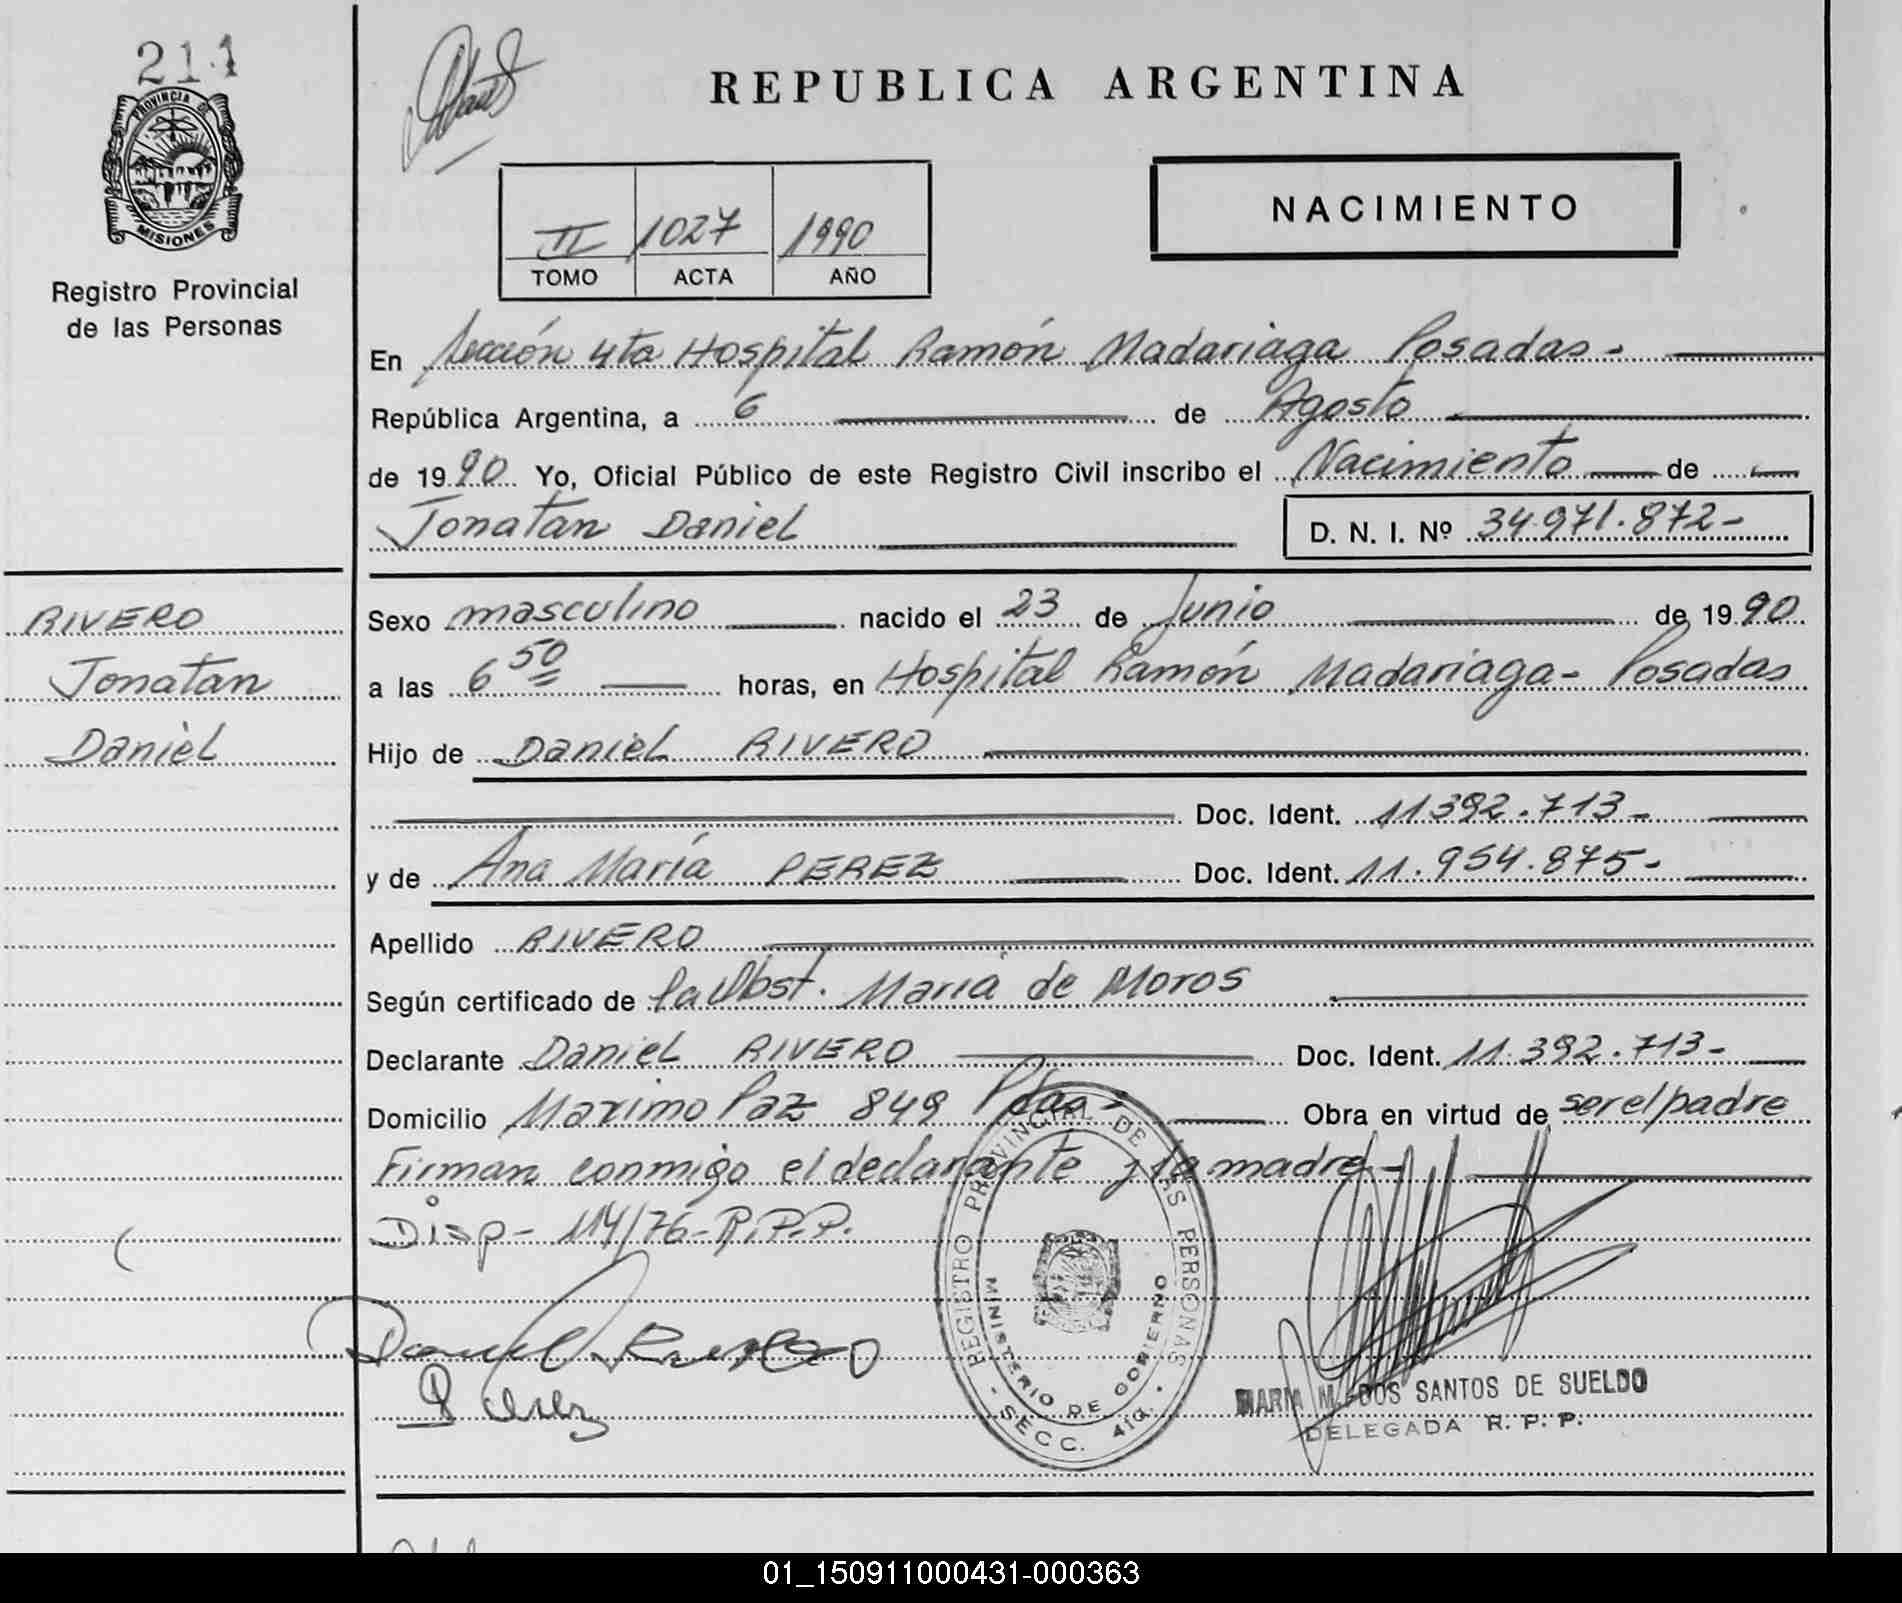 211
PROVINCIA D
MISIONES
Registro Provincial
de las Personas
REPUBLICA ARGENTINA
II 1027 1990
TOMO ACTA AÑO
NACIMIENTO
En Sección 4ta Hospital Ramón Madariaga Posadas-
República Argentina, a 6 de Agosto
de 1990 Yo, Oficial Público de este Registro Civil inscribo el Nacimiento de
Jonatan Daniel D. N. I. Nº 34.971.872-
RIVERO
Jonatan
Daniel
Sexo masculino nacido el 23 de Junio de 1990
a las 6 50 horas, en Hospital Ramón Madariaga- Posadas
Hijo de Daniel RIVERO
Doc. Ident. 11392.713-
y de Ana María PEREZ Doc. Ident. 11.954.875-
Apellido RIVERO
Según certificado de la Obst. María de Moros
Declarante Daniel RIVERO Doc. Ident. 11.392.713-
Domicilio Maximo Paz 849 Pdas- Obra en virtud de ser el padre
Firman conmigo el declarante y la madre-
Disp- 114/76-R.P.P.
Daniel Rivero
Perez
REGISTRO PROVINCIAL DE LAS PERSONAS
MINISTERIO DE GOBIERNO
- SECC. 4ta. -
MARIA M. DOS SANTOS DE SUELDO
DELEGADA R. P. P.
01_150911000431-000363